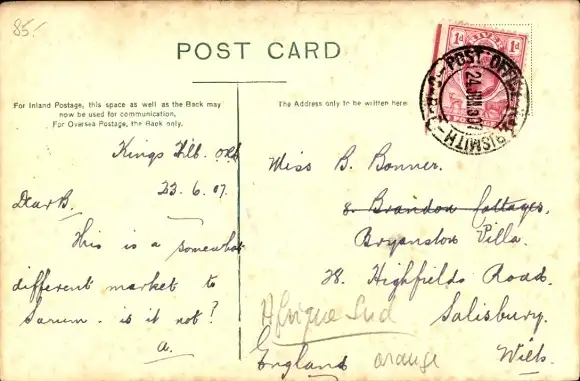 85/-
POST CARD
For Inland Postage, this space as well as the Back may
now be used for communication.
For Oversea Postage, the Back only.
The Address only to be written here
1d 1d
POST OFFICE
24 JUN 07
Kings Hill. ORC
23.6.07.
Dear B.
This is a somewhat
different market to
Sarum. is it not?
a.
Miss B. Bonner.
8. Brandon Cottages.
Bryanston Villa.
28. Highfields Road.
Salisbury.
Wilts.
England
Afrique Sud
orange